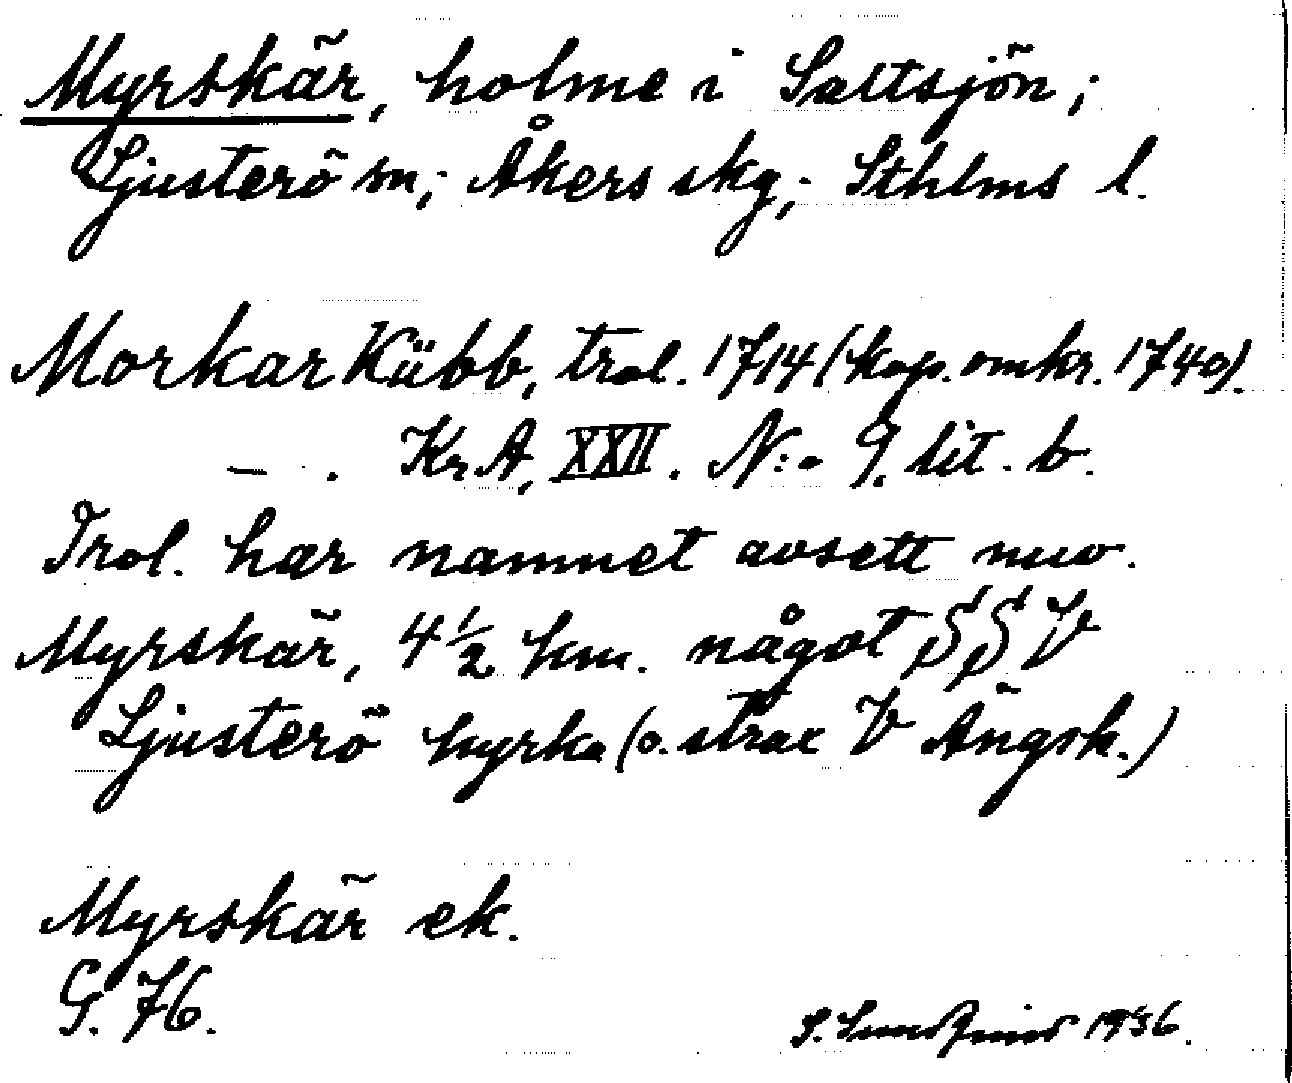 Myrskär, holme i Saltsjön;
Ljusterö sn; Åkers skg; Sthlms l.
Morkar Kübb, trol. 1714 (kop. omkr. 1740).
— . Kr.A, XXII. N:o 9. lit. b.
Trol. har namnet avsett nuv.
Myrskär, 4½ km. något SSV
Ljusterö kyrka (o. strax V Ängsk.)
Myrskär ek.
G. 76.
S. 1936.